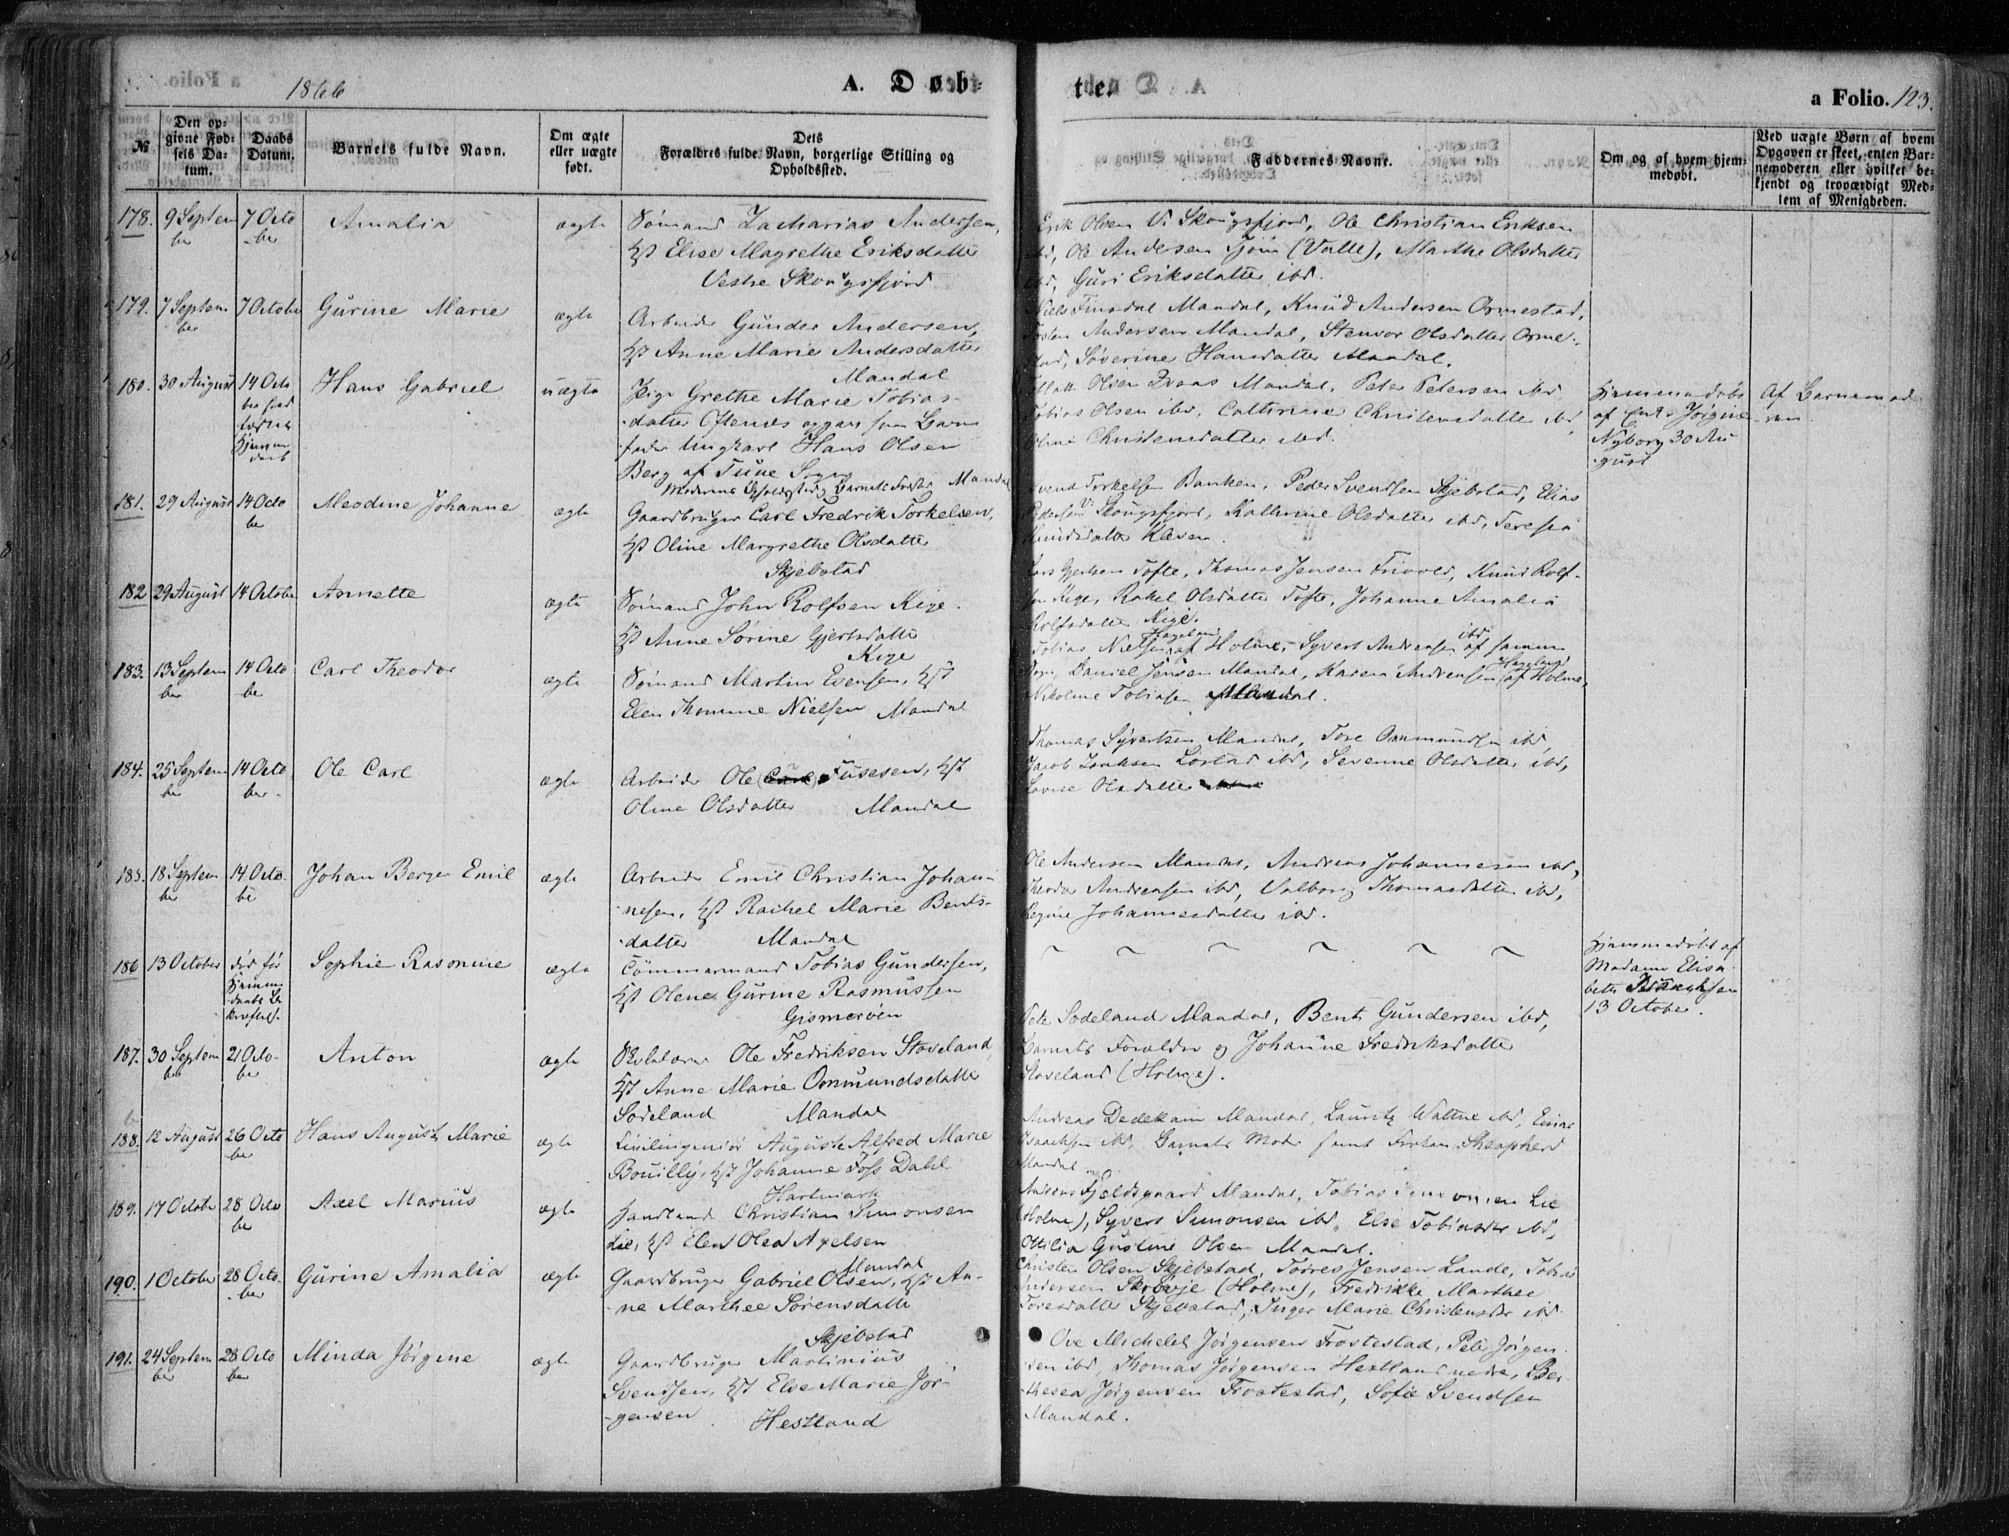 1866
A. Døb-
te.
a Folio. 123.
№
Den op-
givne Fød-
sels Da-
tum.
Daabs
Datum.
Barnets fulde Navn.
Om ægte
eller uægte
født.
Dets
Forældres fulde Navn, borgerlige Stilling og
Opholdssted.
Faddernes Navne.
Om og af hvem hjem-
medøbt.
Ved uægte Børn af hvem
Opgaven er skeet, enten Bar-
nemoderen eller hvilket be-
kjendt og troværdigt Med-
lem af Menigheden.
178. 9 Septem 7 Octo Amalia ægte Sømand Zacharias Andersen,
ber ber Hst Elise Magrethe Eriksdatter
Vestre Skougsfjord
Erik Olsen V. Skougsfjord, Ole Christian Eriksen
ibd, Ole Andersen Tjom (Valle), Marthe Olsdatter
ibd, Guri Eriksdatter ibd.
179. 7 Septem 7 October Gurine Marie ægte Arbeider Gunder Andersen,
ber Hst Anne Marie Andersdatter
Mandal
Niels Finsdal Mandal, Knud Andersen Ormestad,
Torsten Andersen Mandal, Stenvor Olsdatter Orme-
stad, Severine Hansdatter Mandal.
180. 30 August 14 Octo Hans Gabriel uægte Pige Grethe Marie Tobias-
datter Oftenes opgav som Barne
fader Ungkarl Hans Olsen
Berg af Tune Sogn
Moderens Opholdssted og Barnets Fødested Mandal
Olsen Mandal, Peter Petersen ibd
Tobias Olsen ibd, Cathrine Christensdatter ibd
Christensdatter ibd.
Hjemmedøbt
af Jørgine
Nyborg 30 Au-
gust
Af Barnemod
ren
181. 29 August 14 Octo Meodine Johanne ægte Gaardbruger Carl Fredrik Torkelsen,
ber Hst Oline Margrethe Olsdatter
Skjebstad
Svend Torkelsen Banken, Peder Svendsen Skjebstad, Elias
Pedersen V. Skougsfjord, Kathrine Olsdatter ibd, Teresia
Knudsdatter Kleven.
182 29 August 14 October Annette ægte Sømand John Rolfsen Kige.
Hst Anne Sørine Gjertsdatter
Kige
Lars Gjertsen Tofte, Thomas Jensen Frivold, Knud Rolf-
sen Kige, Rakel Olsdatter Tofte, Johanne Amalia
Rolfsdatter Kige.
183. 13 Septem 14 Octo Carl Theodor ægte Sømand Martin Evensen, Hst
ber ber Elen Thomine Nielsen Mandal
Tobias Nielsen Hageland af Holme, Syvert Andreasen ibd af samme
Sogn, Daniel Jensen Mandal, Karen Andreasen Hageland af Holme,
Nikoline Tobiasen Mandal.
184. 25 Septem 14 Octo Ole Carl ægte Arbeider Ole Tusesen, Hst
ber ber. Oline Olsdatter Mandal
Thomas Syvertsen Mandal, Tore Ommundsen ibd,
Jacob Lønstad ibd, Severine Olsdatter ibd,
Lovise Olsdatter
185. 18 Septem 14 Octo Johan Berger Emil ægte Arbeider Emil Christian Johan-
ber ber nesen, Hst Rachel Marie Bents-
datter Mandal
Ole Andersen Mandal, Andreas Johannesen ibd,
Theodor Andreasen ibd, Valborg Thomasdatter ibd,
Regine Johannesdatter ibd.
186 13 October død før Sophie Rasmine ægte Tømmermand Tobias Gundersen,
Hjemme Hst Olene Gurine Rasmussen
daabs Be Gismerøen
kræftelse.
Hjemmedøbt af
Madame Elisa-
beth Isaachsen
13 October.
187. 30 Septem 21 Octo- Anton ægte Ole Fredriksen Stoveland,
ber ber Hst Anne Marie Ommundsdatter
Sodeland Mandal
Peter Sodeland Mandal, Bent Gundersen ibd,
Barnets Forældre og Johanne Fredriksdatter
Stoveland (Holme).
188. 12 August 26 Octo Hans August Marie ægte Civilingeniør Auguste Alfred Marie
ber Bouilly, Hst Johanne Foss Dahl
Hartmark
Andreas Dedekam Mandal, Lauritz Wattne ibd, Einar
Isaachsen ibd, Barnets Moder samt Frøken
Mandal
189. 17 October 28 Octo Axel Marius ægte Handlende Christian Simonsen
ber Lie, Hst Elen Olea Axelsen
Mandal
Andreas Fjeldsgaard Mandal, Tobias Simonsen Lie
(Holme), Syvert Simonsen ibd, Else Tobiasdtr ibd,
Ottilia Gustine Olsen Mandal.
190. 1 October 28 Octo- Gurine Amalia ægte Gaardbruger Gabriel Olsen, Hst An-
ber ne Marthee Sørensdatter
Skjebstad
Christen Olsen Skjebstad, Torres Jensen Lande, Tobias
Andersen Skrøvje (Holme), Fredrikke Marthee
Toresdatter Skjebstad, Inger Marie Christensdtr ibd
191. 24 Septem 28 Octo Minda Jørgine ægte Gaardbruger Martinius
ber ber Svendsen, Hst Else Marie Jør-
gensen. Hestland
Ove Michelet Jørgensen Frostestad, Peter Jørgen-
sen ibd, Thomas Jørgensen Hestland nedre, Ber-
thesea Jørgensen Frostestad, Sofie Svendsen
Mandal.